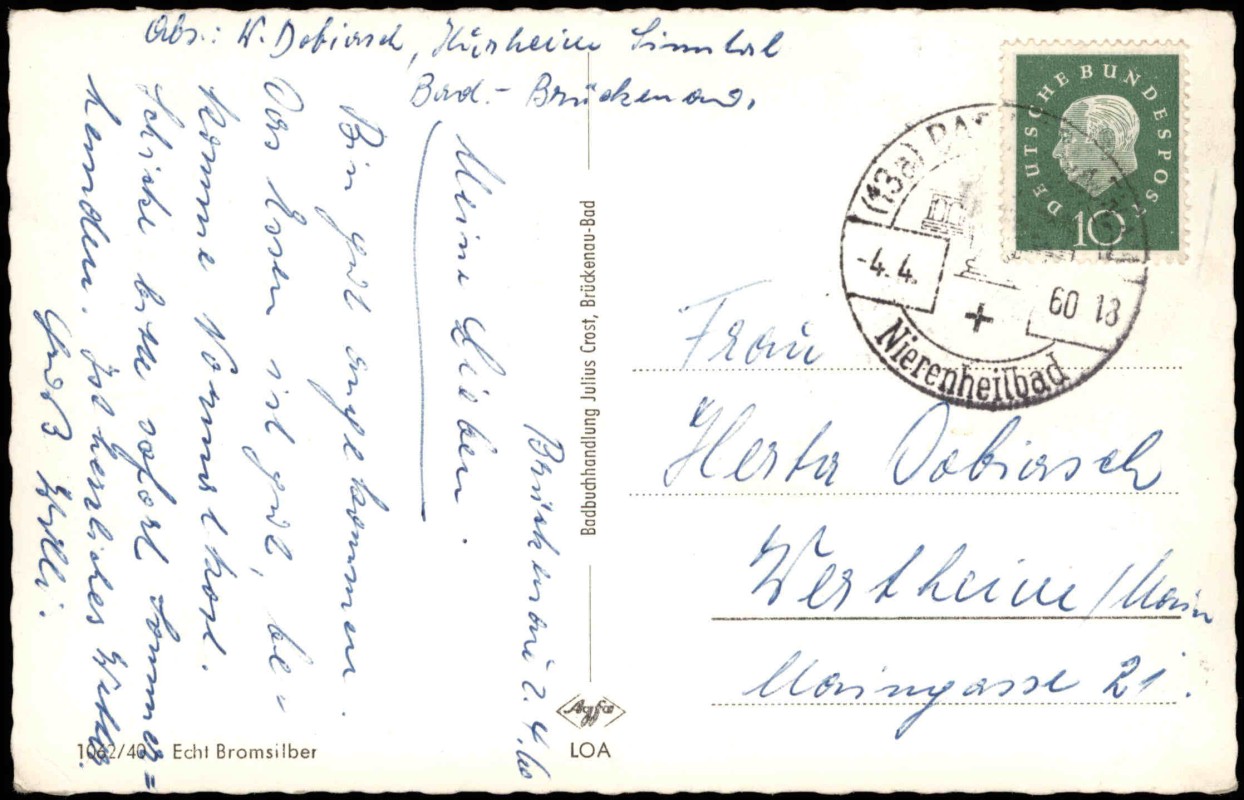 Abs.: W. Dobiasch, Kurheim Sinntal
Bad-Brückenau,
Brückenau 2.4.60
Meine Lieben.
Bin gut angekommen.
Das Essen ist gut, be=
komme Normalkost.
Schicke bitte sofort Sommer=
hemden. Ist herrliches Wetter.
Gruß Willi.
1062/40 Echt Bromsilber
Badbuchhandlung Julius Crost, Brückenau-Bad
Agfa
LOA
DEUTSCHE BUNDESPOST
10
(13a) BAD
-4.4.
60 18
Nierenheilbad
Frau
Herta Dobiasch
Wertheim/Main
Maingasse 21.